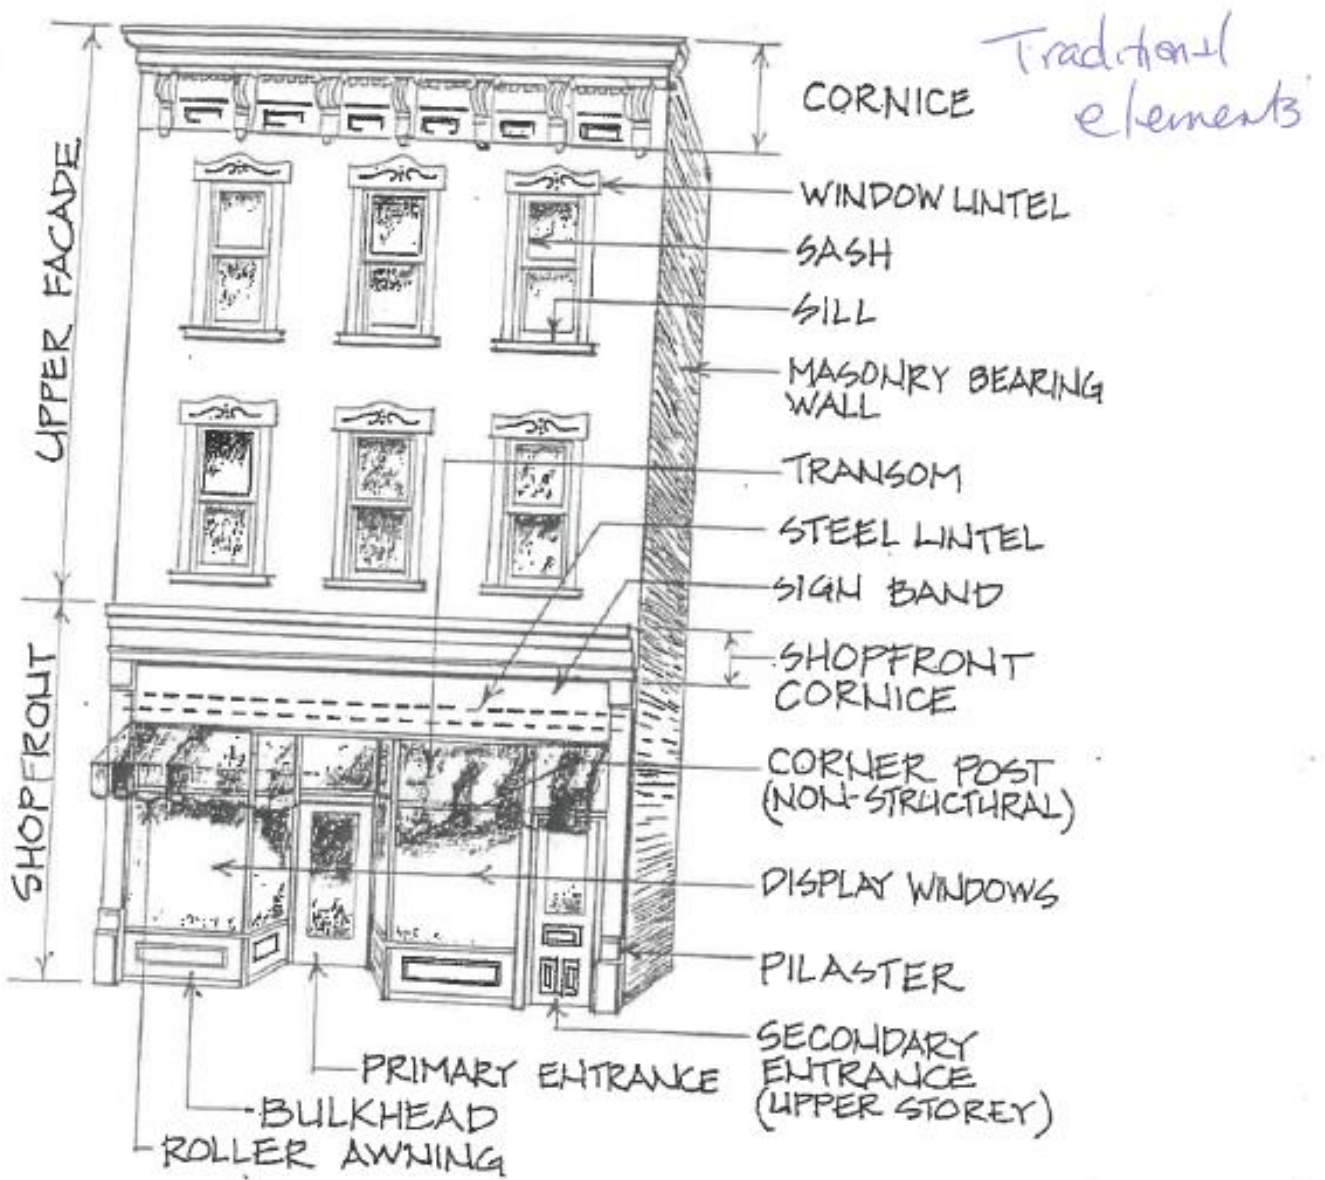 Traditional
elements
CORNICE
WINDOW LINTEL
SASH
SILL
MASONRY BEARING
WALL
TRANSOM
STEEL LINTEL
SIGN BAND
SHOPFRONT
CORNICE
CORNER POST
(NON-STRUCTURAL)
DISPLAY WINDOWS
PILASTER
SECONDARY
ENTRANCE
(UPPER STOREY)
PRIMARY ENTRANCE
BULKHEAD
ROLLER AWNING
UPPER FACADE
SHOPFRONT